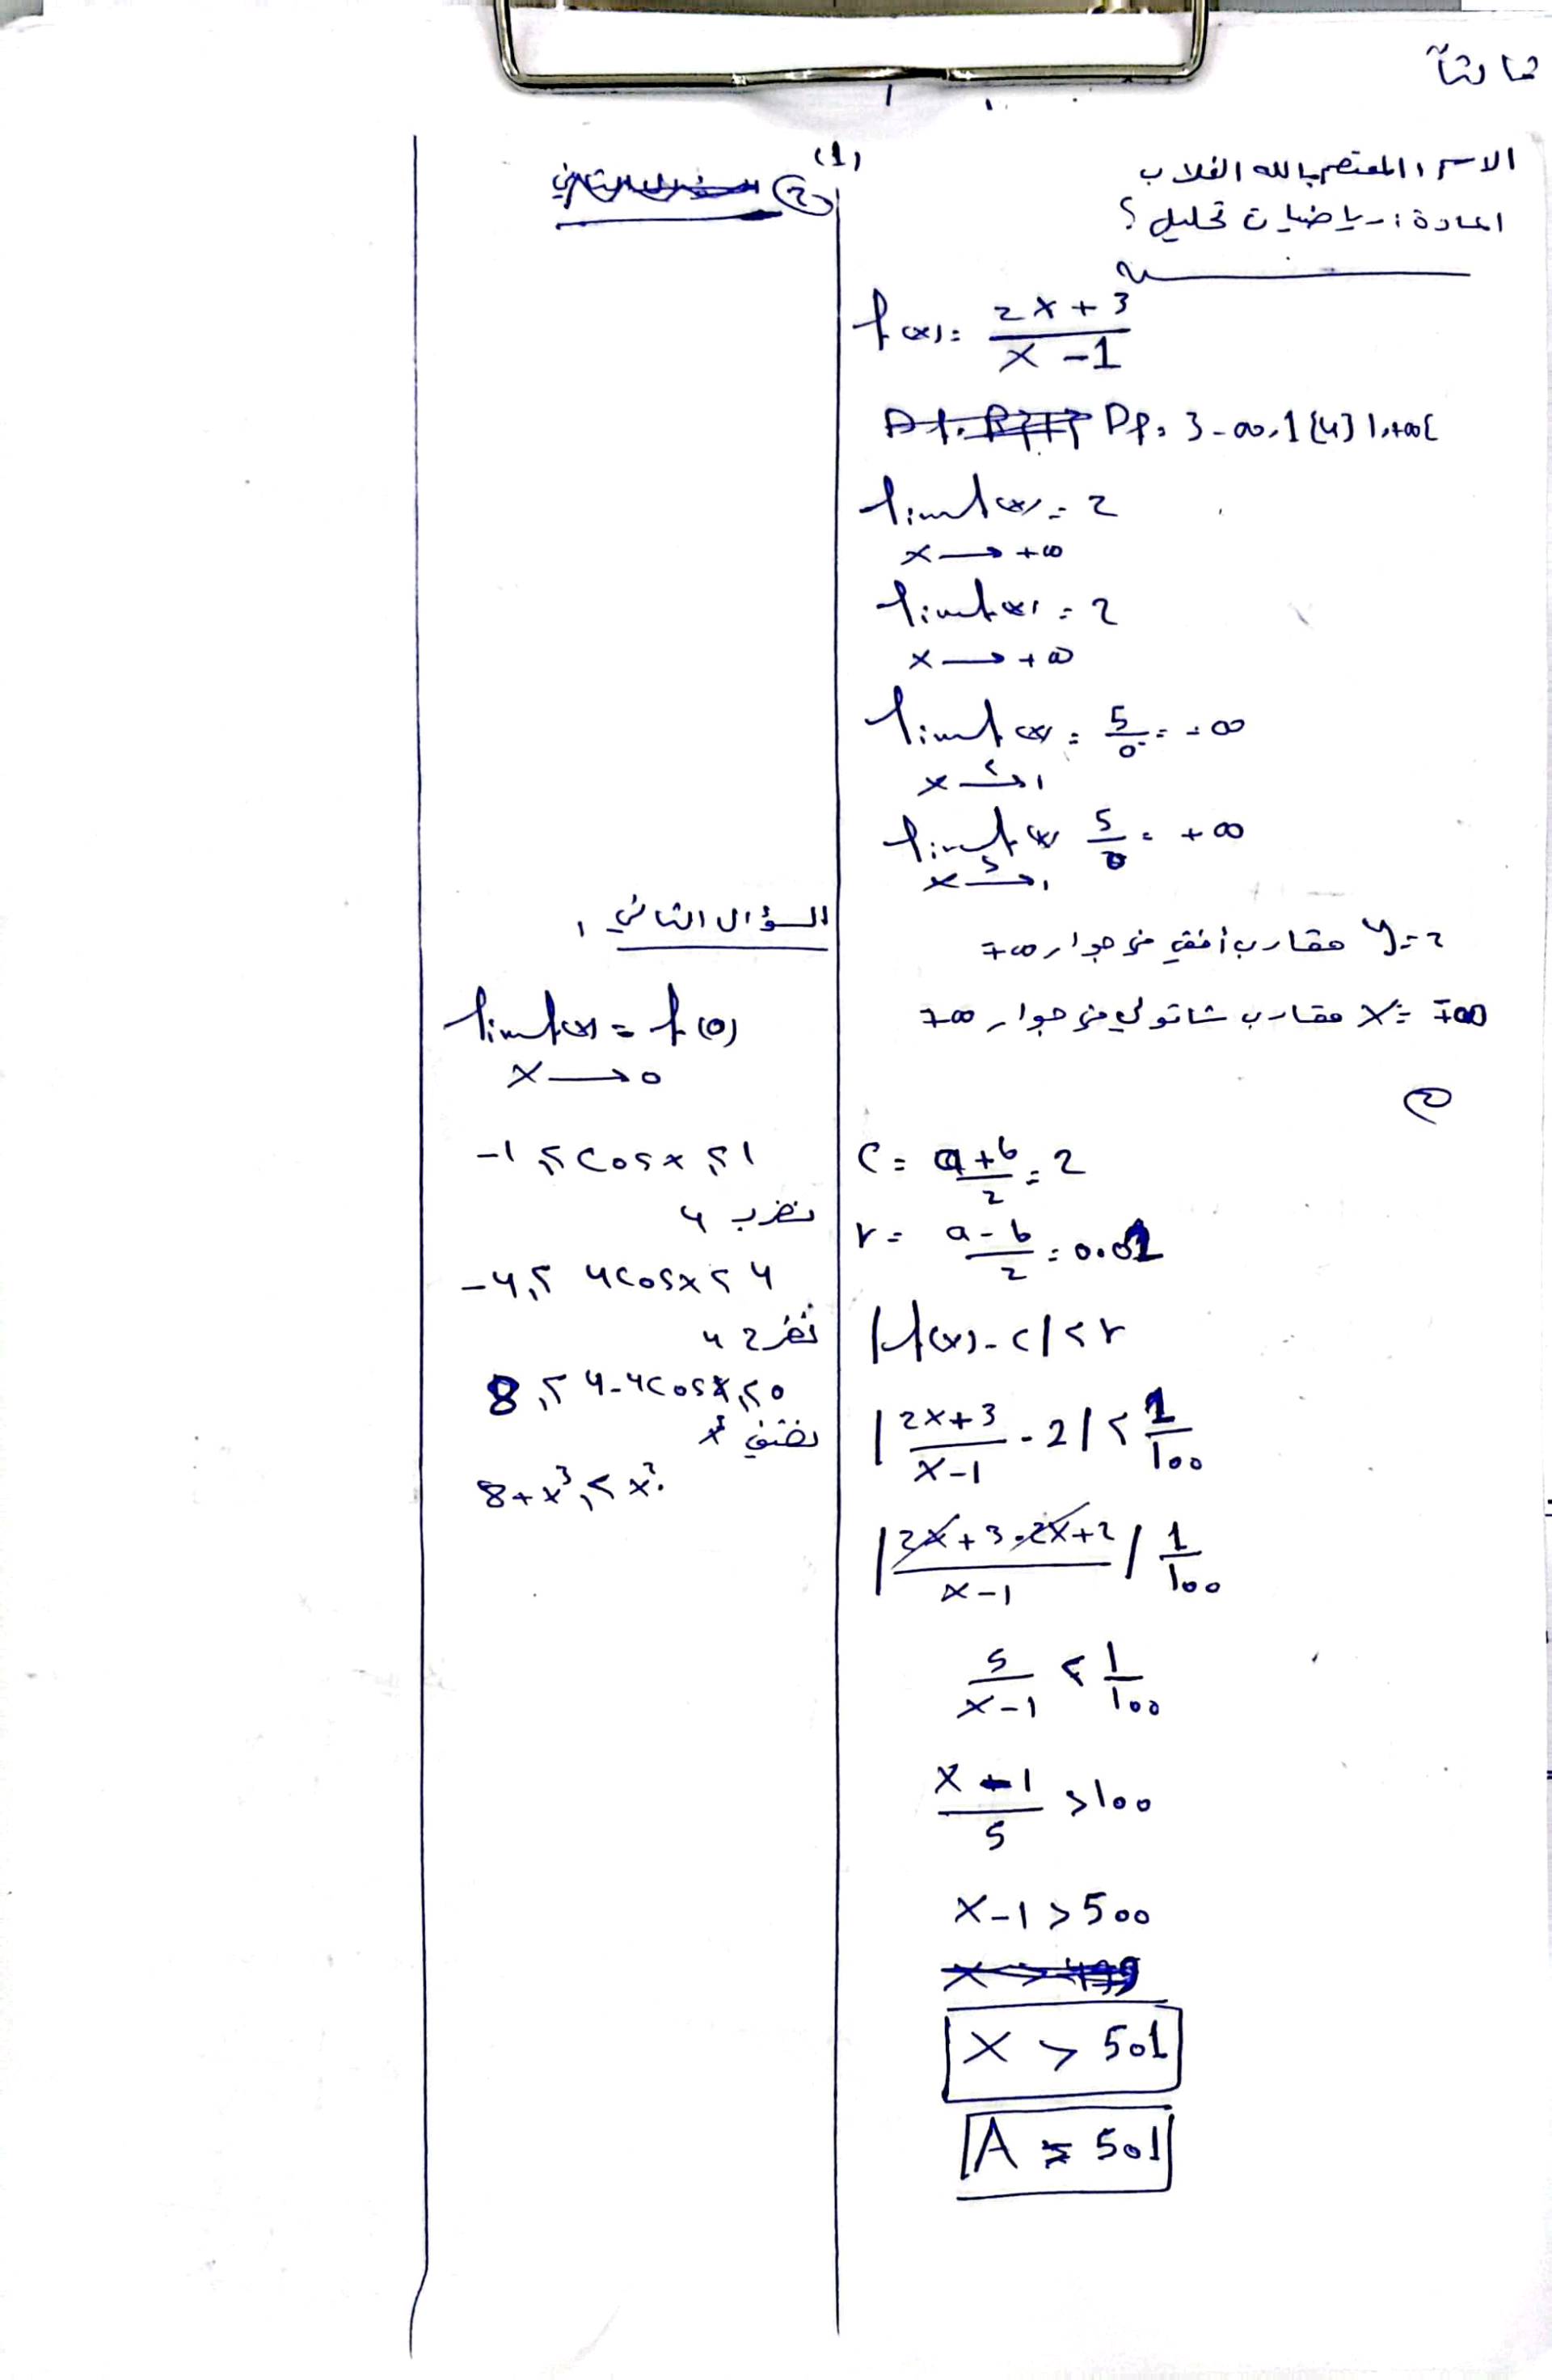 ثالثاً
الاسم: المعتصم بالله الغلاب
المادة: رياضيات تحليل؟
f(x) = \frac{2x+3}{x-1}
Df = ]-∞, 1[ U ]1, +∞[
lim f(x) = 2
x → +∞
lim f(x) = 2
x → +∞
lim f(x) = \frac{5}{0^-} = -∞
x \xrightarrow{<} 1
lim f(x) \frac{5}{0} = +∞
x \xrightarrow{>} 1
y = 2 مقارب أفقي في جوار ∓∞
x = ∓∞ مقارب شاقولي في جوار ∓∞
②
c = \frac{a+b}{2} = 2
r = \frac{a-b}{2} = 0.01
|f(x) - c| < r
|\frac{2x+3}{x-1} - 2| < \frac{1}{100}
|\frac{2x+3-2x+2}{x-1}| \frac{1}{100}
\frac{5}{x-1} < \frac{1}{100}
\frac{x-1}{5} > 100
x-1 > 500
x > 501
A = 501
(1)
②
السؤال الثاني:
lim f(x) = f(0)
x → 0
-1 ≤ cos x ≤ 1
نضرب 4
-4 ≤ 4cos x ≤ 4
8 ≥ 4-4cos x ≥ 0
8+x³ ≥ x²